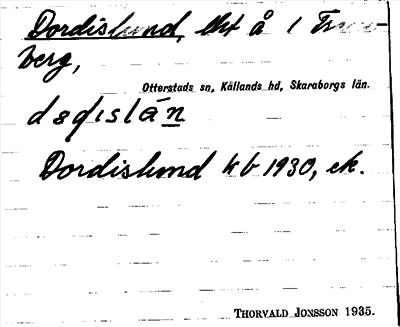 Dordislund, lht å 1
berg,
Otterstads sn, Kållands hd, Skaraborgs län.
Dordislund kb 1930, ek.
THORVALD JONSSON 1935.